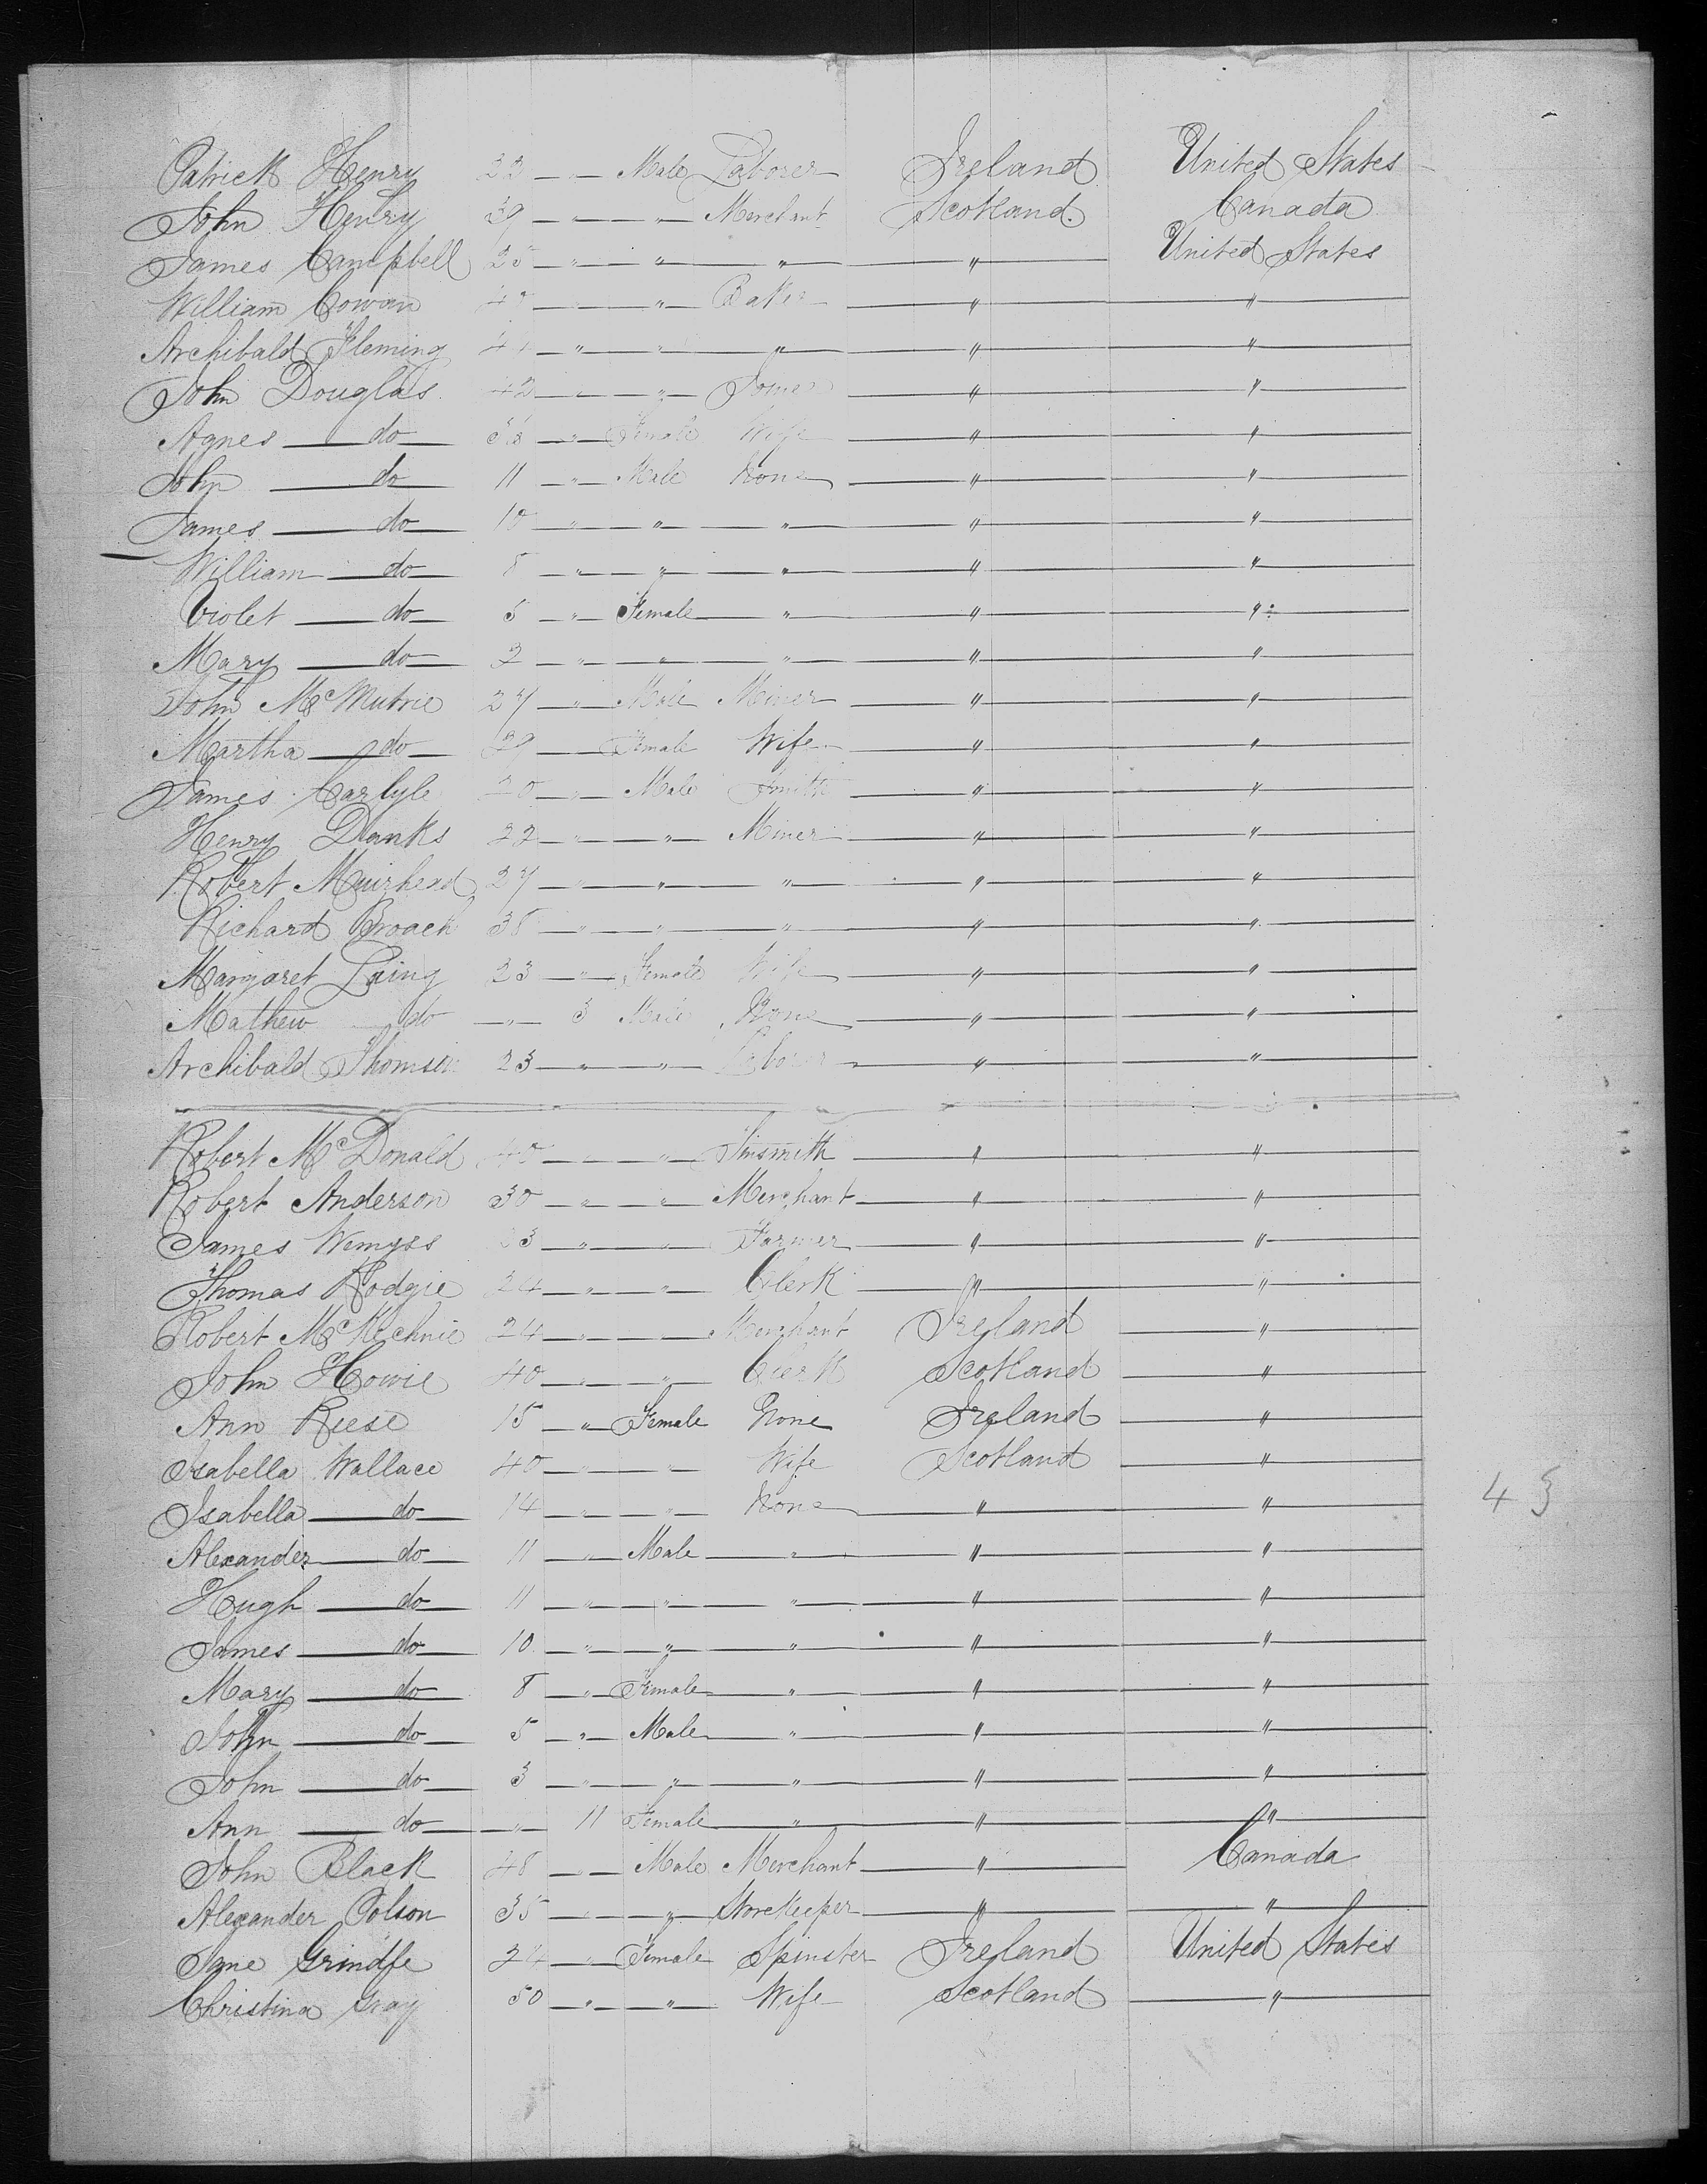 Patrick Henry 22 — " — Male Laborer Ireland United States
John Henry 39 — " — " — Merchant Scotland. Canada
James Campbell 25 — " — " — " — " — United States
William Cowan — " — " — Baker — " — "
Archibald Fleming — " — " — " — " — "
John Douglas 42 — " — " — — " — "
Agnes — do — — " — Female Wife — " — "
John — do — 11 — " — Male None — " — "
James — do — 10 — " — " — " — " — "
William — do — 8 — " — " — " — " — "
Violet — do — 5 — " — Female — " — " — "
Mary — do — 2 — " — " — " — " — "
John McMutrie 27 — " — Male Miner — " — "
Martha — do — 29 — " — Female Wife — " — "
James Carlyle 20 — " — Male Smith — " — "
Henry Danks 22 — " — " — Miner — " — "
Robert Muirhead 27 — " — " — " — " — "
Richard Broach 38 — " — " — " — " — "
Margaret Laing 23 — " — Female Wife — " — "
Mathew do — " — 3 Male None — " — "
Archibald Thomson 23 — " — " — Laborer — " — "
Robert McDonald 40 — " — " — Tinsmith — " — "
Robert Anderson 30 — " — " — Merchant — " — "
James Wemyss 23 — " — " — Farmer — " — "
Thomas Hodgie 24 — " — " — Clerk — " — "
Robert McKechnie 24 — " — " — Merchant Ireland — "
John Howie 40 — " — " — Clerk Scotland — "
Ann Reese 15 — " — Female None Ireland — "
Isabella Wallace 40 — " — " — Wife Scotland — "
Isabella — do — 14 — " — " — None — " — "
Alexander — do — 11 — " — Male — " — " — "
Hugh — do — 11 — " — " — " — " — "
James — do — 10. — " — " — " — " — "
Mary — do — 8 — " — Female — " — " — "
John — do — 5 — " — Male — " — " — "
John — do — 3 — " — " — " — " — "
Ann — do — " — 11 Female — " — " — "
John Black 48 — " — Male Merchant — " — Canada
Alexander Polson 35 — " — " — Storekeeper — " — "
Jane Grindle 24 — " — Female Spinster Ireland United States
Christina Gray 50 — " — " — Wife Scotland — "